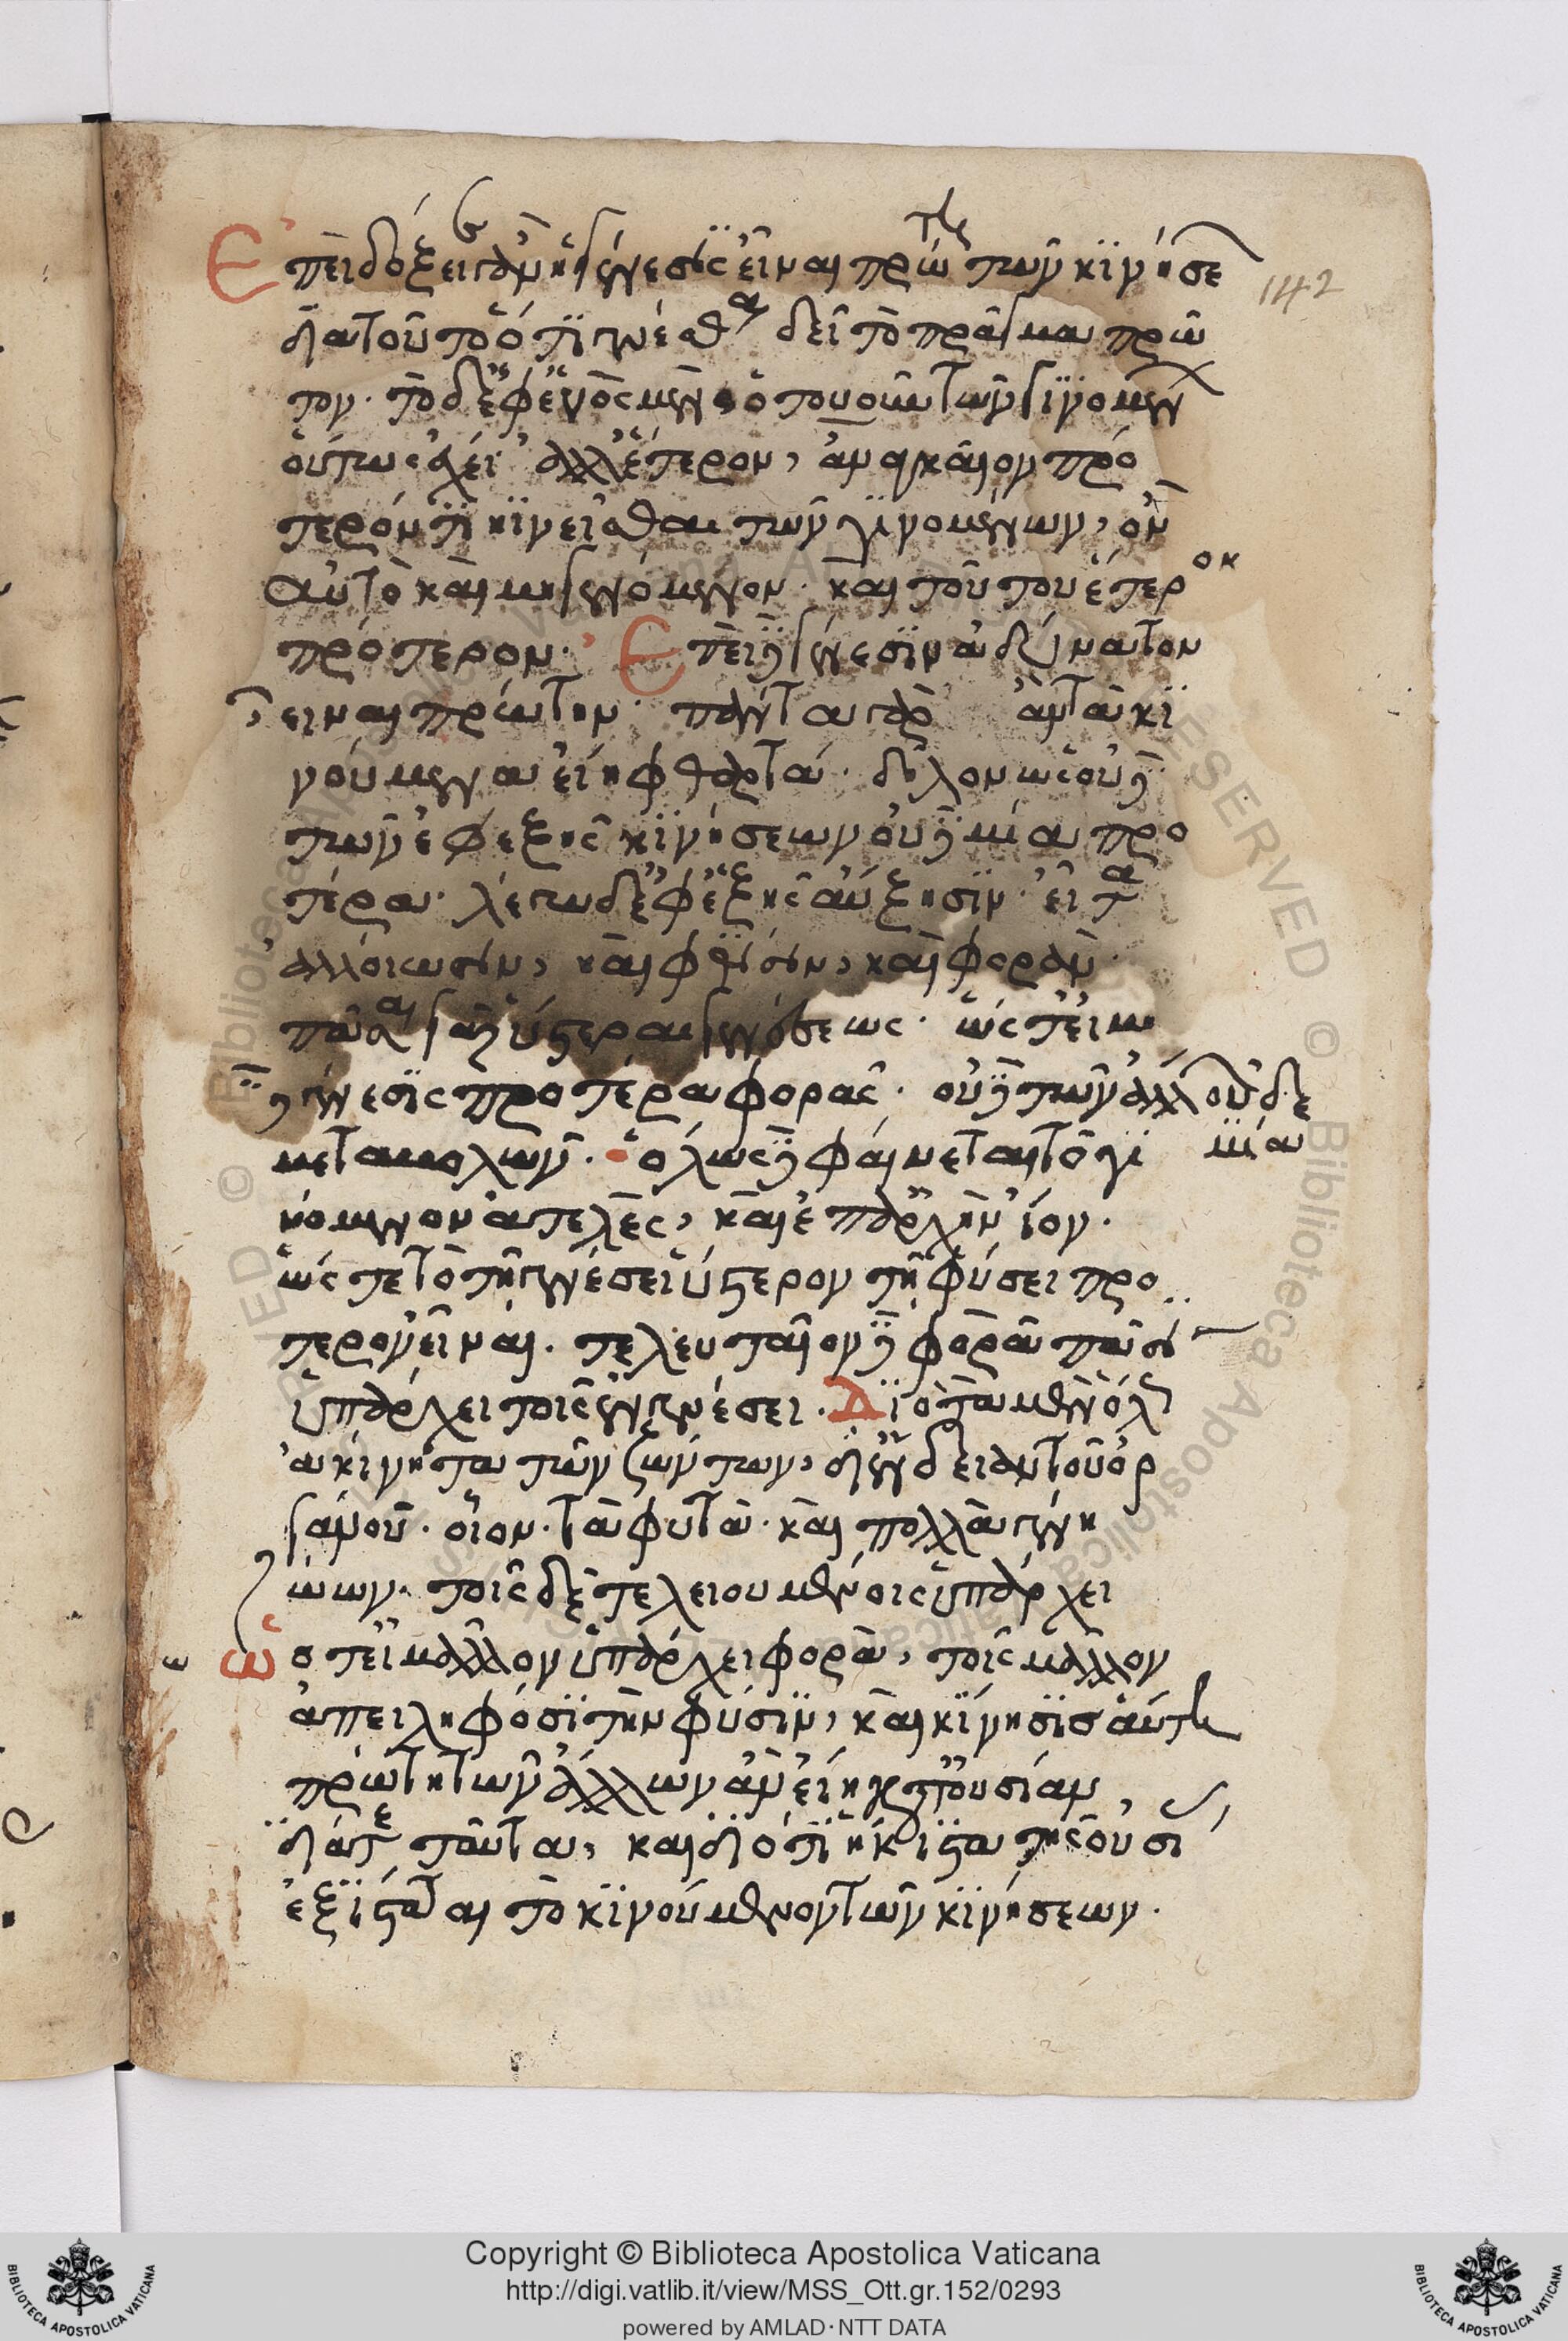 Ἐπεὶ δόξειε γὰρ ἂν ἡ γένεσις εἶναι πρώτη τῶν κινήσε
ων διὰ τοῦτο ὅτι γενέσθαι δεῖ τὸ πρᾶγμα πρῶ
τον. τὸ δ' ἐφ' ἑνὸς μὲν ὁτουοῦν τῶν γινομένων
οὕτως ἔχει. ἀλλ' ἕτερον, ἀναγκαῖον πρό
τερόν τι κινεῖσθαι τῶν γινομένων, ὂν
αὐτὸ καὶ μὴ γενόμενον. καὶ τούτου ἕτερον
πρότερον. Ἐπεὶ δὲ γένεσιν ἀδύνατον
εἶναι πρώτην. πάντα γὰρ ἂν τὰ κι
νούμενα εἴη φθαρτά. δῆλον ὡς οὐδὲ
τῶν ἐφεξῆς κινήσεων οὐδεμία προ
τέρα. λέγω δ' ἐφεξῆς αὔξησιν. εἶτα
ἀλλοίωσιν, καὶ φθίσιν, καὶ φοράν.
πᾶσαι γὰρ ὕστεραι γενέσεως. ὥστ' εἰ μη
δὲ γένεσις προτέρα φορᾶς. οὐδὲ τῶν ἄλλων οὐδε
μία
μεταβολῶν. ὅλως δὲ φαίνεται τὸ γι
νόμενον ἀτελὲς, καὶ ἐπ' ἀρχὴν ἰόν.
ὥστε τὸ τῇ γενέσει ὕστερον τῇ φύσει πρό
τερον εἶναι. τελευταῖον δὲ φορὰ πᾶσιν
ὑπάρχει τοῖς ἐν γενέσει. Διὸ τὰ μὲν ὅλως
ἀκίνητα τῶν ζώντων, δι' ἔνδειαν τοῦ ὀρ
γάνου. οἷον. τὰ φυτὰ. καὶ πολλὰ γένη
ζώων. τοῖς δὲ τελειουμένοις ὑπάρχει
ὥστ' εἰ μᾶλλον ὑπάρχει φορὰ, τοῖς μᾶλλον
ἀπειληφόσι τὴν φύσιν, καὶ κίνησις αὕτη
πρώτη τῶν ἄλλων ἂν εἴη κατ' οὐσίαν,
διά τε ταῦτα, καὶ διότι ἥκιστα τῆς οὐσί
ἐξίσταται τὸ κινούμενον τῶν κινήσεων.
142
Copyright © Biblioteca Apostolica Vaticana
http://digi.vatlib.it/view/MSS_Ott.gr.152/0293
powered by AMLAD·NTT DATA